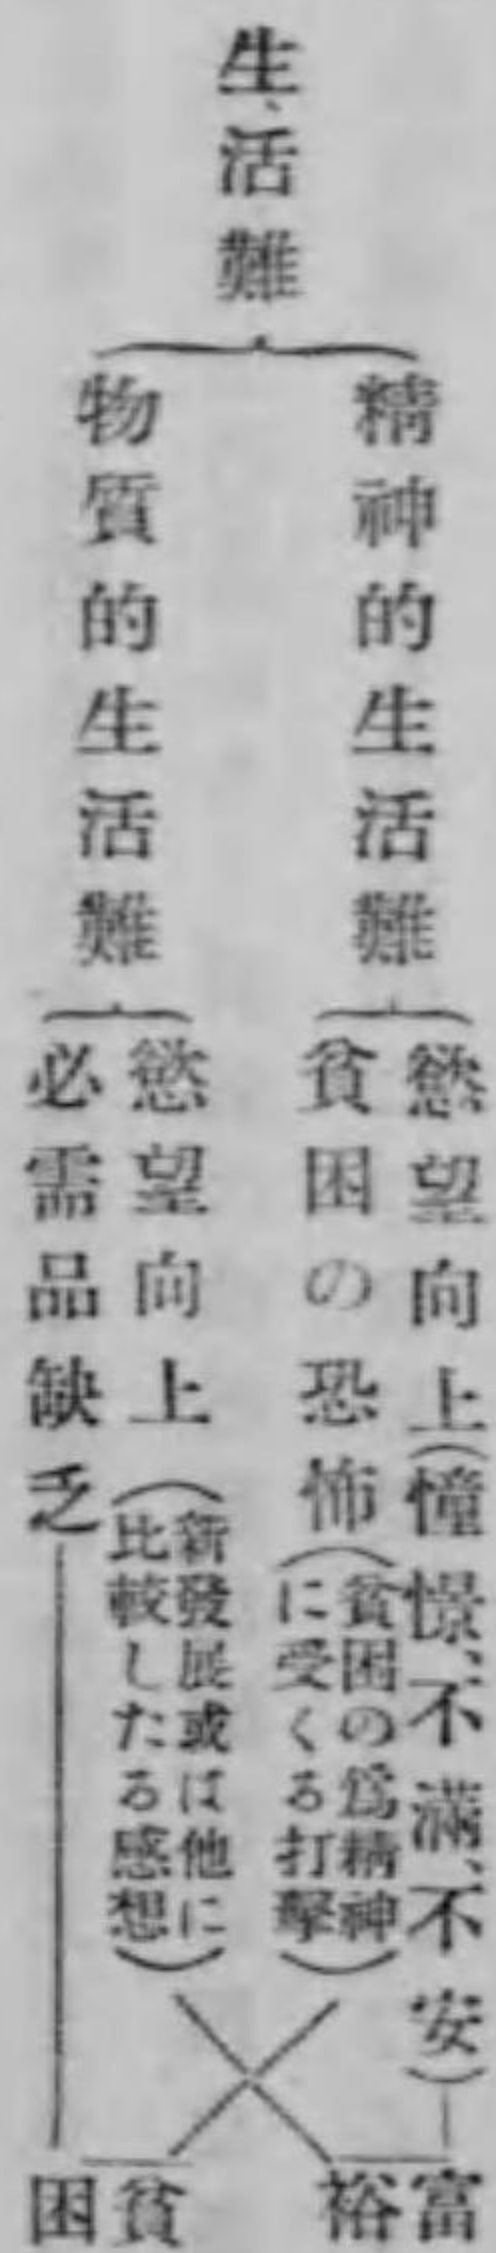 生活難
精神的生活難
慾望向上(憧憬、不滿、不安)
貧困の恐怖(貧困の爲精神
に受くる打擊)
物質的生活難
慾望向上(新發展或は他に
比較したる感想)
必需品缺乏
富裕
貧困